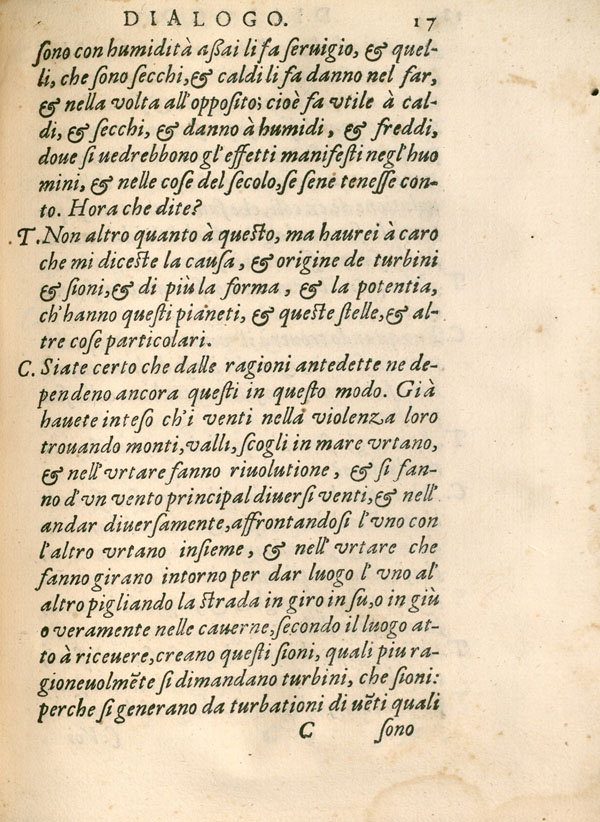 DIALOGO. 17
sono con humidità aßai li fa seruigio, & quel-
li, che sono secchi, & caldi li fa danno nel far,
& nella volta all'opposito; cioè fa vtile à cal-
di, & secchi, & danno à humidi, & freddi,
doue si uedrebbono gl'effetti manifesti negl'huo
mini, & nelle cose del secolo, se sene tenesse con-
to. Hora che dite?
T. Non altro quanto à questo, ma haurei à caro
che mi diceste la causa, & origine de turbini
& sioni, & di più la forma, & la potentia,
ch'hanno questi pianeti, & queste stelle, & al-
tre cose particolari.
C. Siate certo che dalle ragioni antedette ne de-
pendeno ancora questi in questo modo. Già
hauete inteso ch'i venti nella violenza loro
trouando monti, valli, scogli in mare vrtano,
& nell'vrtare fanno riuolutione, & si fan-
no d'vn vento principal diuersi venti, & nell'
andar diuersamente, affrontandosi l'vno con
l'altro vrtano insieme, & nell'vrtare che
fanno girano intorno per dar luogo l'vno al'
altro pigliando la strada in giro in su, o in giù
o veramente nelle cauerne, secondo il luogo at-
to à riceuere, creano questi sioni, quali piu ra-
gioneuolmẽte si dimandano turbini, che sioni:
perche si generano da turbationi di uẽti quali
C sono